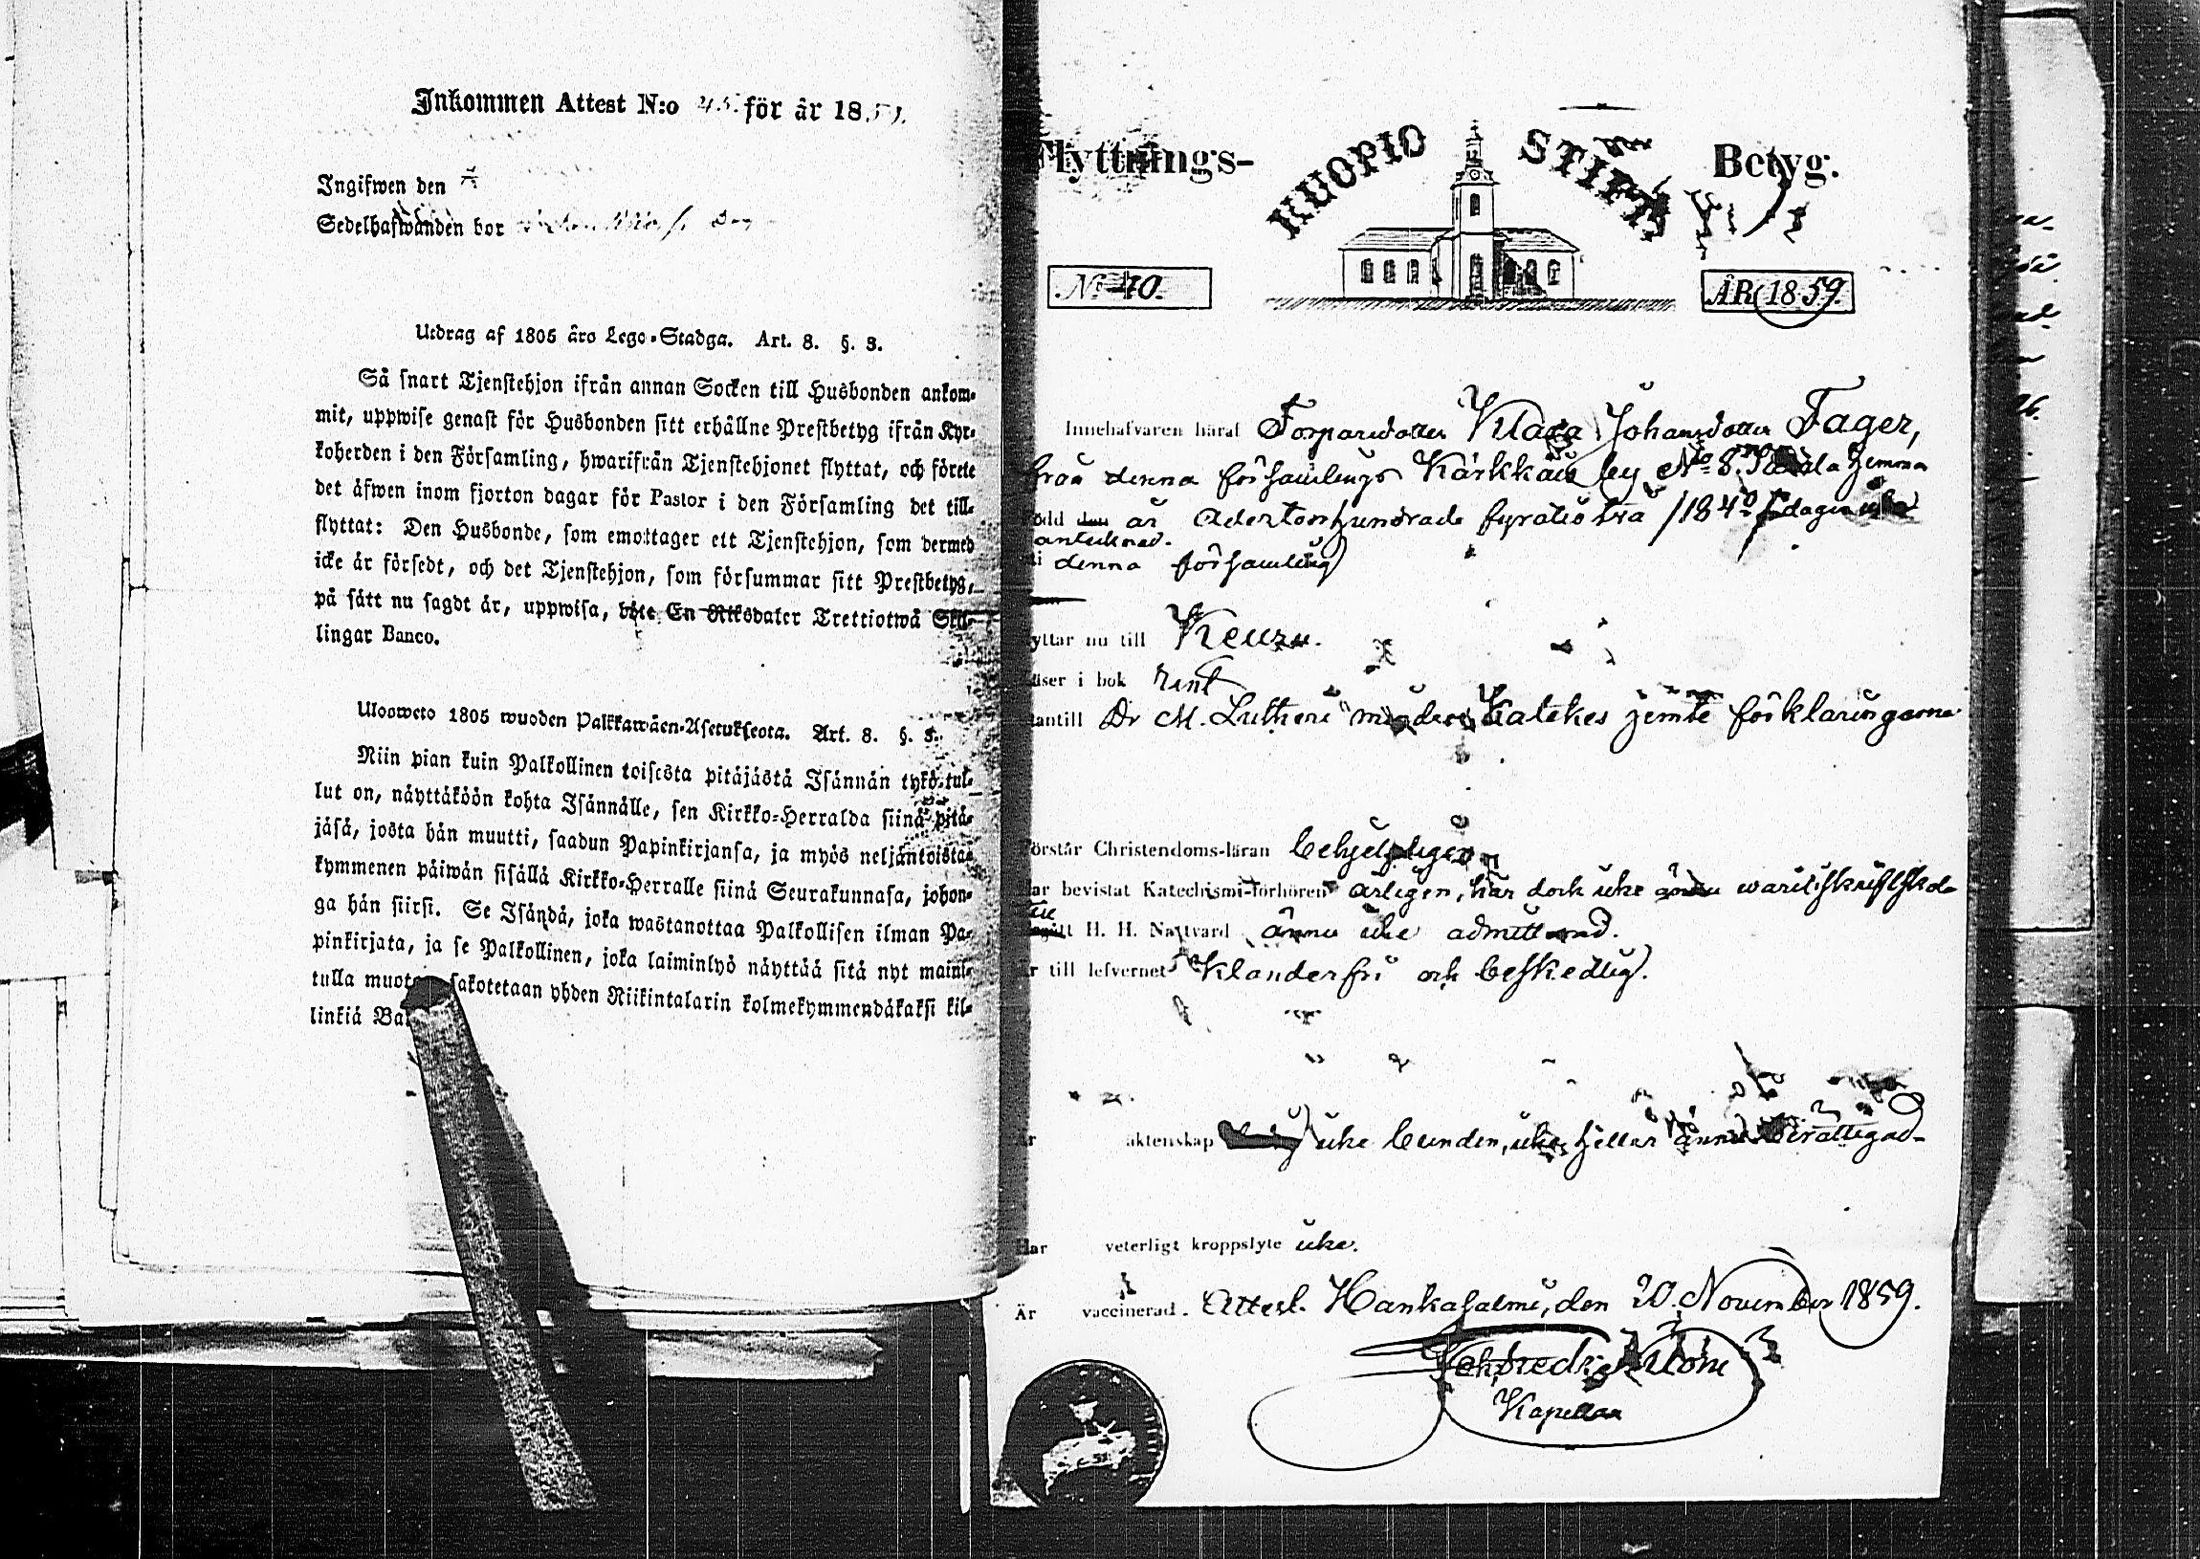 Inkommen Attest N:o 45. för år 1859.
Ingifwen den
Sedelhafwanden bor
Utdrag af 1805 åro Lego-Stadga. Art. 8. §. 3.
Så snart Tjenstehjon ifrån annan Socken till Husbonden ankom-
mit, uppwise genast för Husbonden sitt erhållne Prestbetyg ifrån Kyr-
koherden i den Församling, hwarifrån Tjenstehjonet flyttat, och förete
det äfwen inom fjorton dagar för Pastor i den Församling det till-
flyttat: Den Husbonde, som emottager ett Tjenstehjon, som dermed
icke är försedt, och det Tjenstehjon, som försummar sitt Prestbetyg,
på sätt nu sagdt är, uppwisa, böte En Riksdaler Trettiotwå Skil-
lingar Banco.
Ulosweto 1805 wuoden Palkkawäen-Asetuksesta. Art. 8. §. 3.
Niin pian kuin Palkollinen toisesta pitäjästä Isännän tykö tul-
lut on, näyttäköön kohta Isännälle, sen Kirkko-Herralda siinä pitä-
jäsä, josta hän muutti, saadun Papinkirjansa, ja myös neljäntoista-
kymmenen päiwän sisällä Kirkko-Herralle siinä Seurakunnasa, johon-
ga hän siirsi. Se Isändä, joka wastanottaa Palkollisen ilman Pa-
pinkirjata, ja se Palkollinen, joka laiminlyö näyttää sitä nyt maini-
tulla muot sakotetaan yhden Riikintalarin kolmekymmendäkaksi kil-
linkiä Ba
Flyttnings- KUOPIO STIFT Betyg.
No 40. ÅR 1859.
Innehafvaren häraf Torparedotter Klara Johansdotter Fager,
från denna församlings Kärkkäis by No 8. hemma
född den år Adertonhundrade fyratio två /1842/ dagen icke
antecknad.
i denna församling
flyttar nu till Keuru.
Läser i bok rent
utantill Dr M. Lutheri mindre Katekes jemte förklaringarne
Förstår Christendoms-läran behjelpligen
Har bevistat Katechismi-förhören årligen, har dock icke ännu warit i skriftskola
till
H. H. Nattvard ännu icke admitterad.
Är till lefvernet Klanderfri och beskedlig.
äktenskap icke bunden, icke heller ännu berättigad.
Har veterligt kroppslyte icke.
Är vaccinerad. Attest. Hankasalmi, den 20 November 1859.
Kapellan